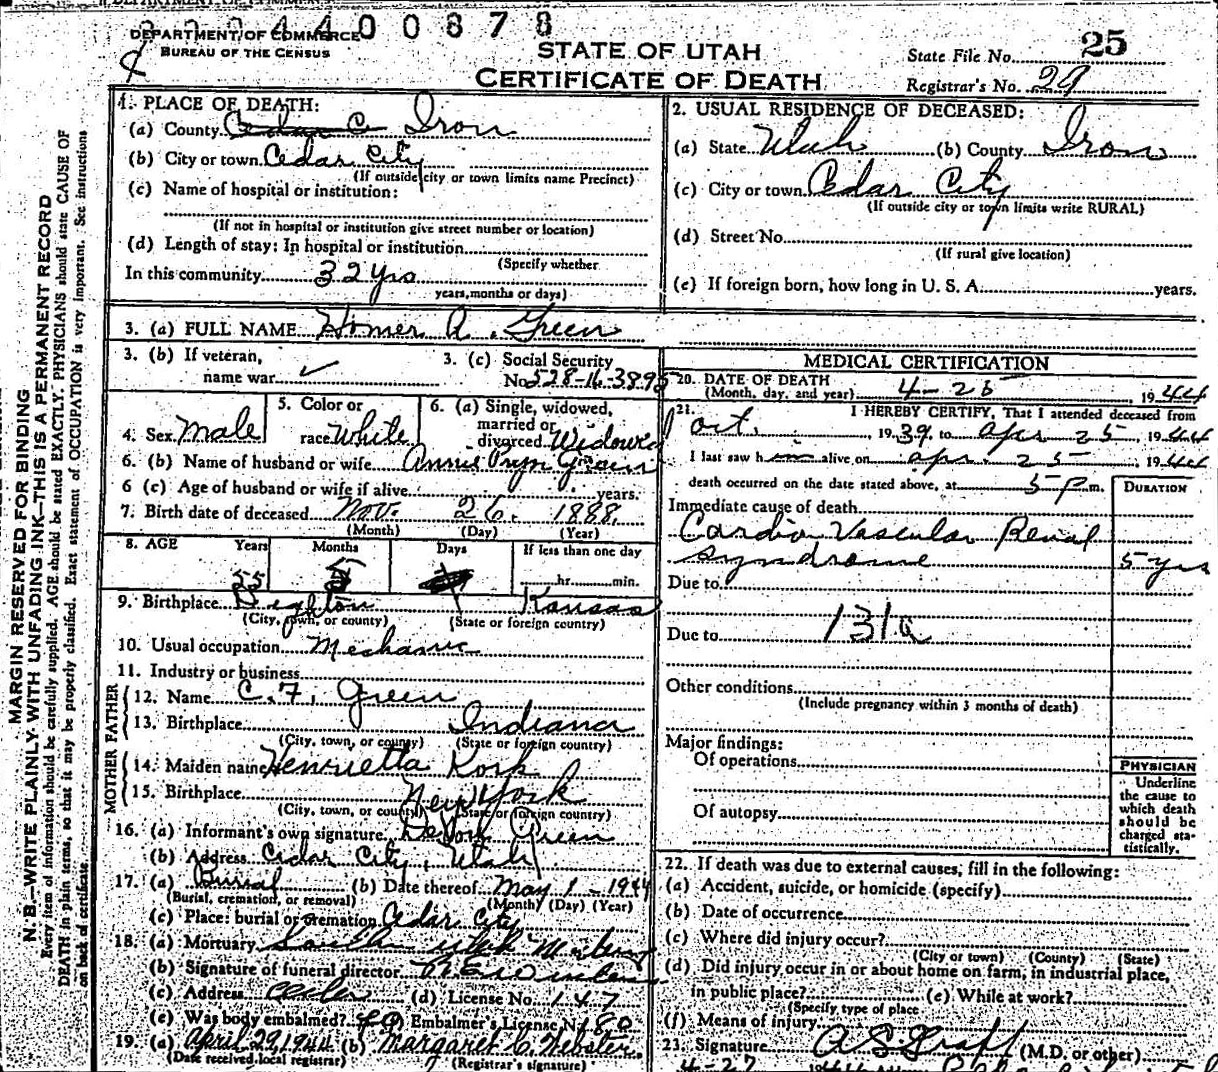 DEPARTMENT OF COMMERCE
BUREAU OF THE CENSUS
00878
STATE OF UTAH
CERTIFICATE OF DEATH
State File No. 25
Registrar's No. 29
MARGIN RESERVED FOR BINDING
N. B.—WRITE PLAINLY, WITH UNFADING INK—THIS IS A PERMANENT RECORD
Every item of information should be carefully supplied. AGE should be stated EXACTLY. PHYSICIANS should state CAUSE OF
DEATH in plain terms, so that it may be properly classified. Exact statement of OCCUPATION is very important. See instructions
on back of certificate.
1. PLACE OF DEATH:
(a) County Iron
(b) City or town Cedar City
(If outside city or town limits name Precinct)
(c) Name of hospital or institution:
(If not in hospital or institution give street number or location)
(d) Length of stay: In hospital or institution
(Specify whether
In this community 32 yrs
years, months or days)
2. USUAL RESIDENCE OF DECEASED:
(a) State Utah (b) County Iron
(c) City or town Cedar City
(If outside city or town limits write RURAL)
(d) Street No.
(If rural give location)
(e) If foreign born, how long in U. S. A. years.
3. (a) FULL NAME Homer A. Green
3. (b) If veteran,
name war
3. (c) Social Security
No. 528-16-3895
4. Sex Male
5. Color or
race White
6. (a) Single, widowed,
married or
divorced Widowed
6. (b) Name of husband or wife Annie Green
6 (c) Age of husband or wife if alive years.
7. Birth date of deceased Nov. 26. 1888
(Month) (Day) (Year)
8. AGE Years Months Days If less than one day
55 5 hr. min.
9. Birthplace Dighton Kansas
(City, town, or county) (State or foreign country)
10. Usual occupation Mechanic
11. Industry or business
FATHER
12. Name C. F. Green
13. Birthplace Indiana
(City, town, or county) (State or foreign country)
MOTHER
14. Maiden name Henrietta Kork
15. Birthplace New York
(City, town, or county) (State or foreign country)
16. (a) Informant's own signature Green
(b) Address Cedar City, Utah
17. (a) Burial (b) Date thereof May 1 - 1944
(Burial, cremation, or removal) (Month) (Day) (Year)
(c) Place: burial or cremation Cedar City
18. (a) Mortuary Southern Utah Mortuary
(b) Signature of funeral director
(c) Address Cedar (d) License No. 147
(e) Was body embalmed? Embalmer's License No. 180
19. (a) April 29, 1944 (b) Margaret C. Webster
(Date received local registrar) (Registrar's signature)
MEDICAL CERTIFICATION
20. DATE OF DEATH
(Month, day, and year) 4-25, 1944
21. I HEREBY CERTIFY, That I attended deceased from
Oct. , 1939, to Apr 25, 1944
I last saw him alive on Apr. 25, 1944
death occurred on the date stated above, at 5 P. m.
DURATION
Immediate cause of death
Cardio Vascular Renal
syndrome 5 yrs
Due to
Due to 131a
Other conditions
(Include pregnancy within 3 months of death)
Major findings:
Of operations
Of autopsy
PHYSICIAN
Underline
the cause to
which death
should be
charged sta-
tistically.
22. If death was due to external causes, fill in the following:
(a) Accident, suicide, or homicide (specify)
(b) Date of occurrence
(c) Where did injury occur?
(City or town) (County) (State)
(d) Did injury occur in or about home on farm, in industrial place,
in public place? (e) While at work?
(Specify type of place
(f) Means of injury
23. Signature (M.D. or other)
4-27